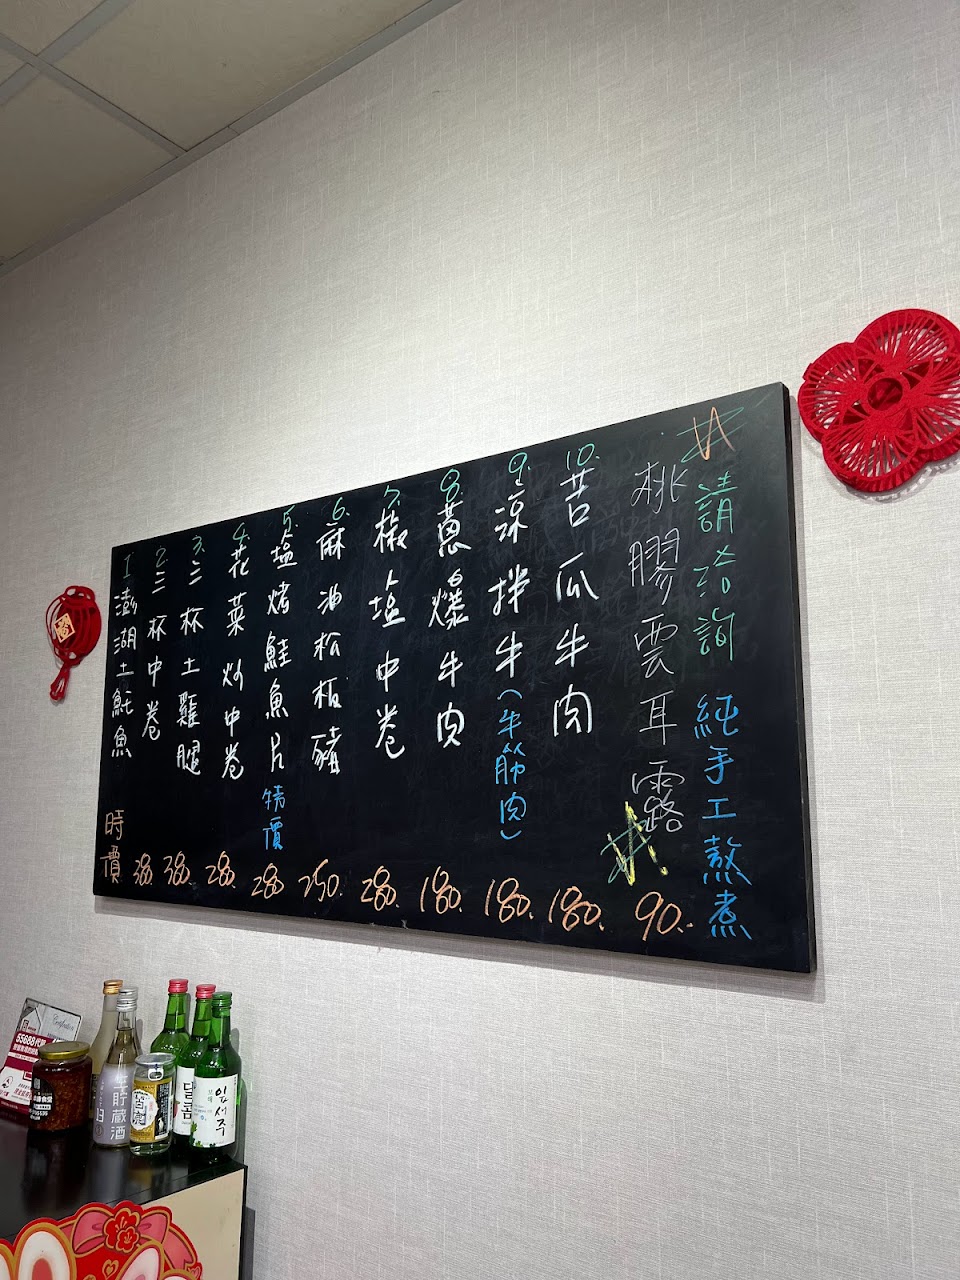 請洽詢 純手工熬煮
桃膠雲耳露 90.
10. 苦瓜牛肉 180.
9. 涼拌牛(牛筋肉) 180.
8. 蔥爆牛肉 180.
7. 椒塩中卷 280.
6. 麻油松板豬 250.
5. 塩烤鮭魚片 特價 280
4. 花菜炒中卷 280.
3. 三杯土雞腿 380.
2. 三杯中卷 380.
1. 澎湖土魠魚 時價
55688代駕
生貯蔵酒
13
달콤
잎서주